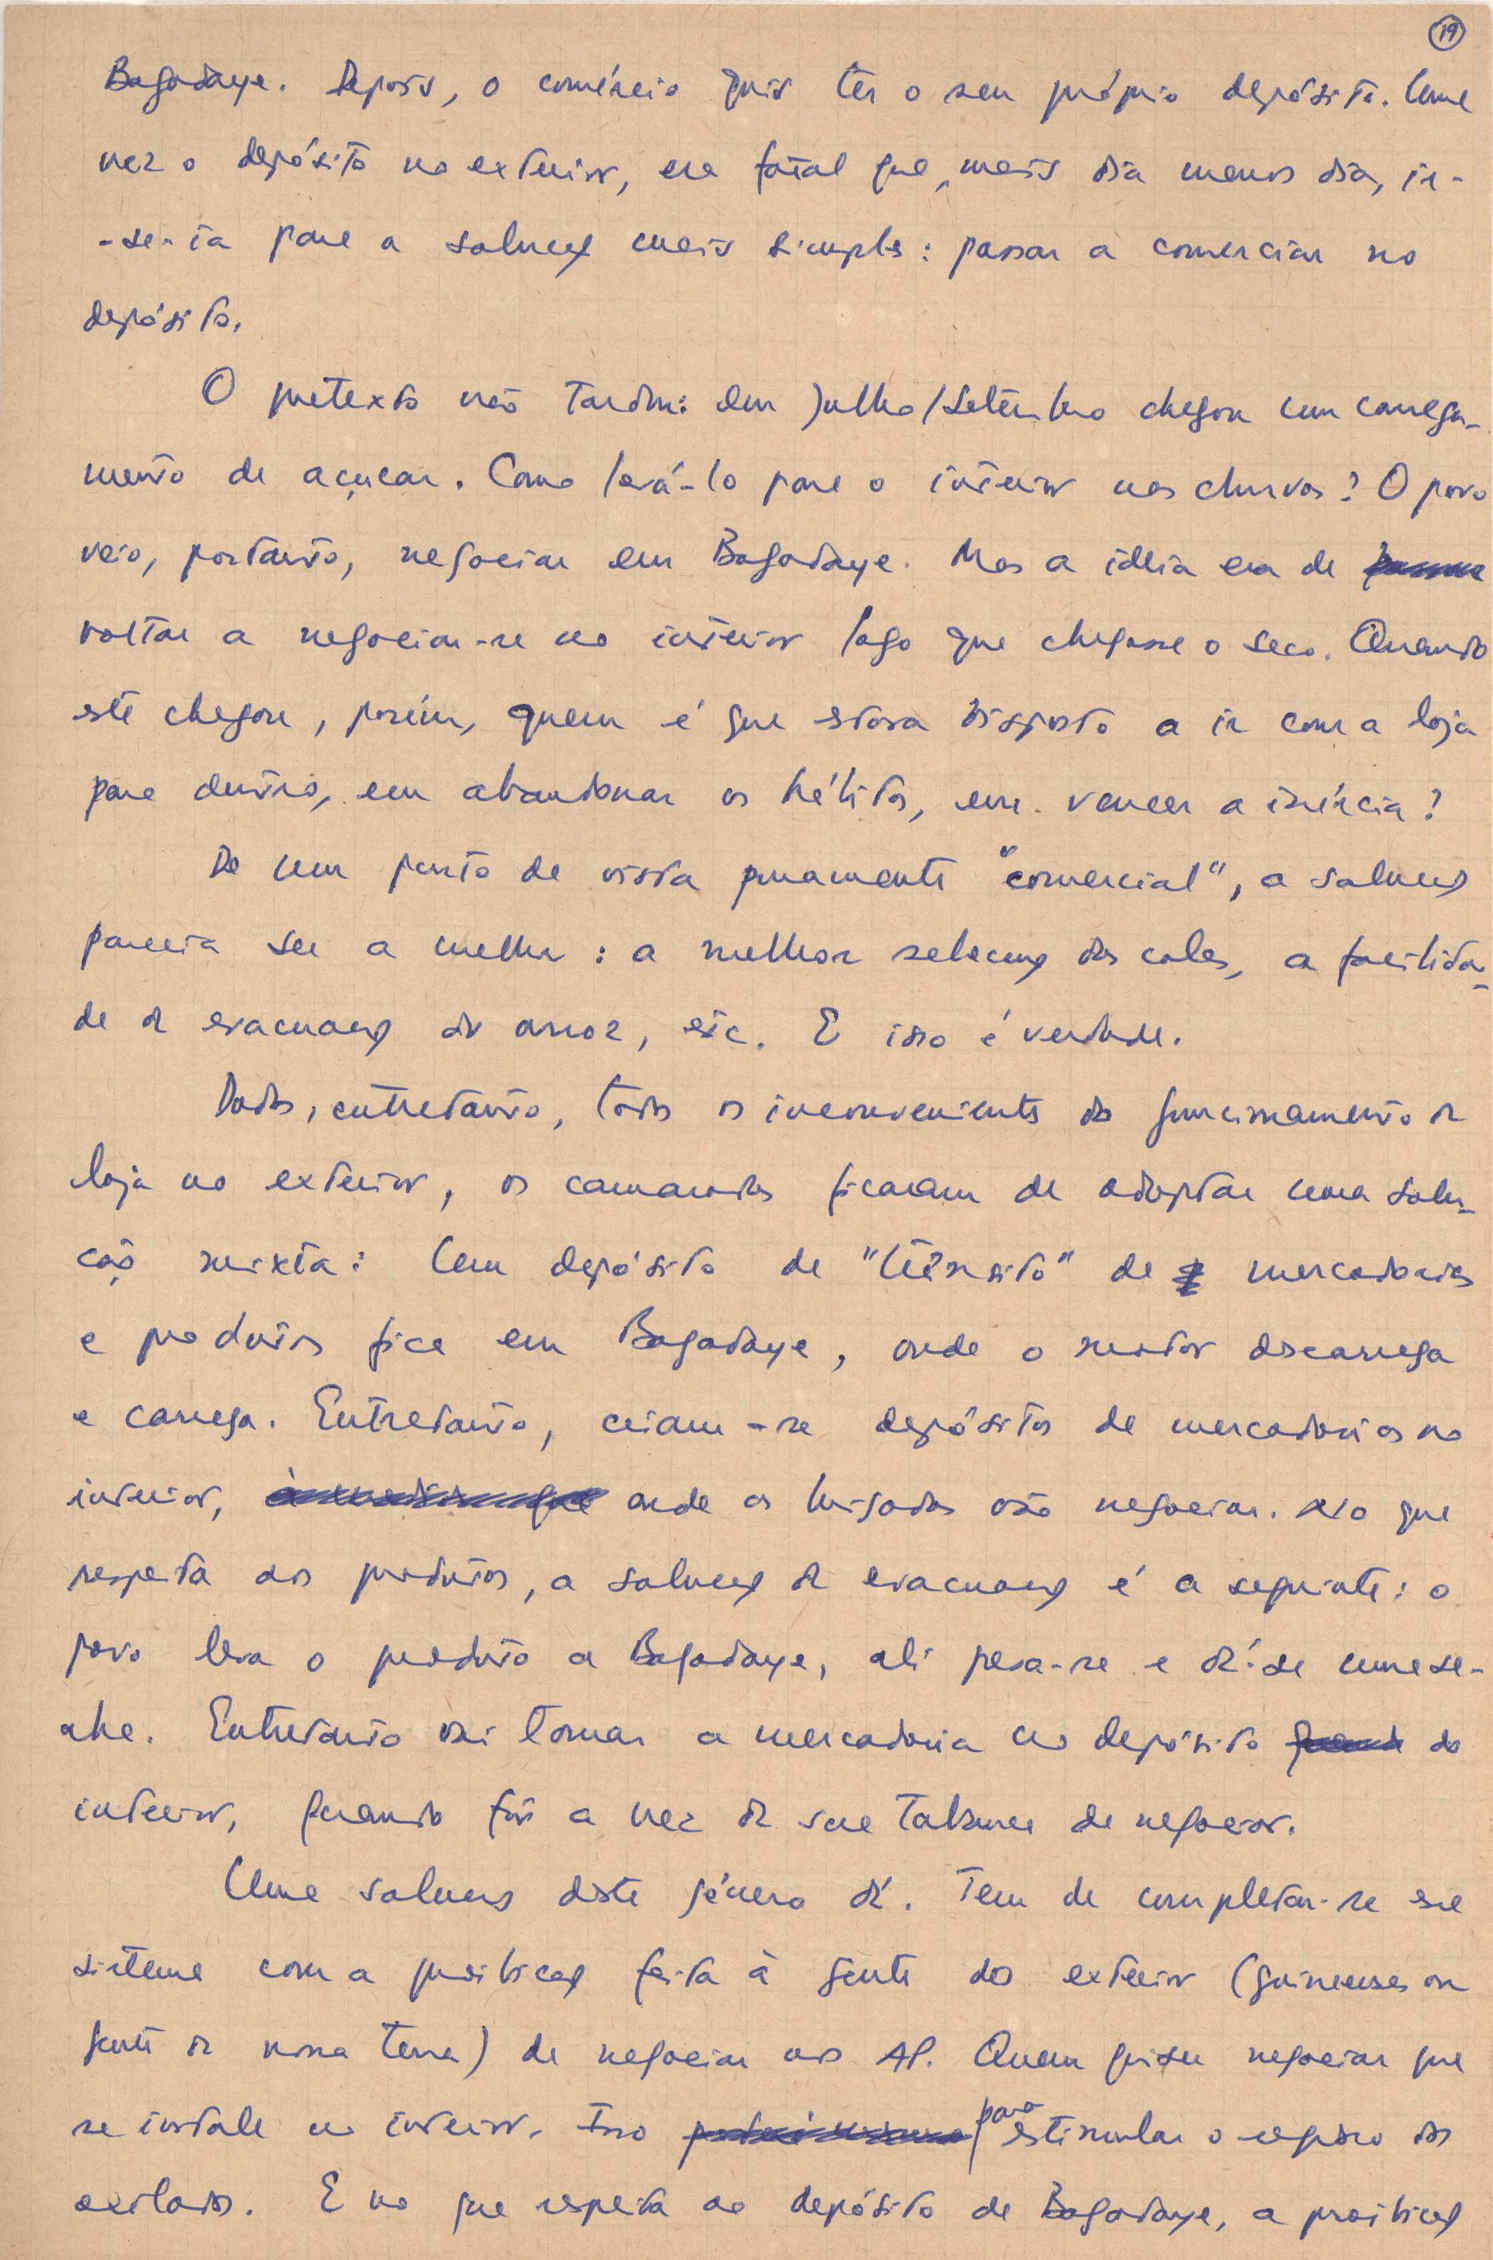 19
Bagadaye. Depois, o comércio quis ter o seu próprio depósito. Uma
vez o depósito no exterior, era fatal que, mais dia menos dia, ir-
-se-ia para a solução mais simples: passar a comerciar no
depósito.
O pretexto não tardou: em Julho/Setembro chegou um carrega-
mento de açucar. Como levá-lo para o interior nas chuvas? O povo
veio, portanto, negociar em Bagadaye. Mas a ideia era de
voltar a negociar-se no interior logo que chegasse o seco. Quando
este chegou, porém, quem é que estava disposto a ir com a loja
para dentro, em abandonar os hábitos, em vencer a inércia?
De um ponto de vista puramente "comercial", a solução
parecia ser a melhor: a melhor selecção das colas, a facilida-
de da evacuação do arroz, etc. E isso é verdade.
Dados, entretanto, todos os inconvenientes do funcionamento da
loja no exterior, os camaradas ficaram de adoptar uma solu-
ção mixta: Um depósito de "trânsito" de mercadorias
e produtos fica em Bagadaye, onde o motor descarrega
e carrega. Entretanto, criam-se depósitos de mercadorias no
interior, onde as brigadas vão negociar. No que
respeita aos produtos, a solução da evacuação é a seguinte: o
povo leva o produto a Bagadaye, ali pesa-se e dá-se uma se-
nha. Entretanto vai tomar a mercadoria no depósito do
interior, quando for a vez da sua tabanca de negociar.
Uma solução deste género dá. Tem de completar-se esse
sistema com a proibição feita à gente do exterior (guineenses ou
gente da nossa terra) de negociar nos AP. Quem quiser negociar que
se instale no interior. Isso para estimular o regresso dos
exilados. E no que respeita ao depósito de Bagadaye, a proibição